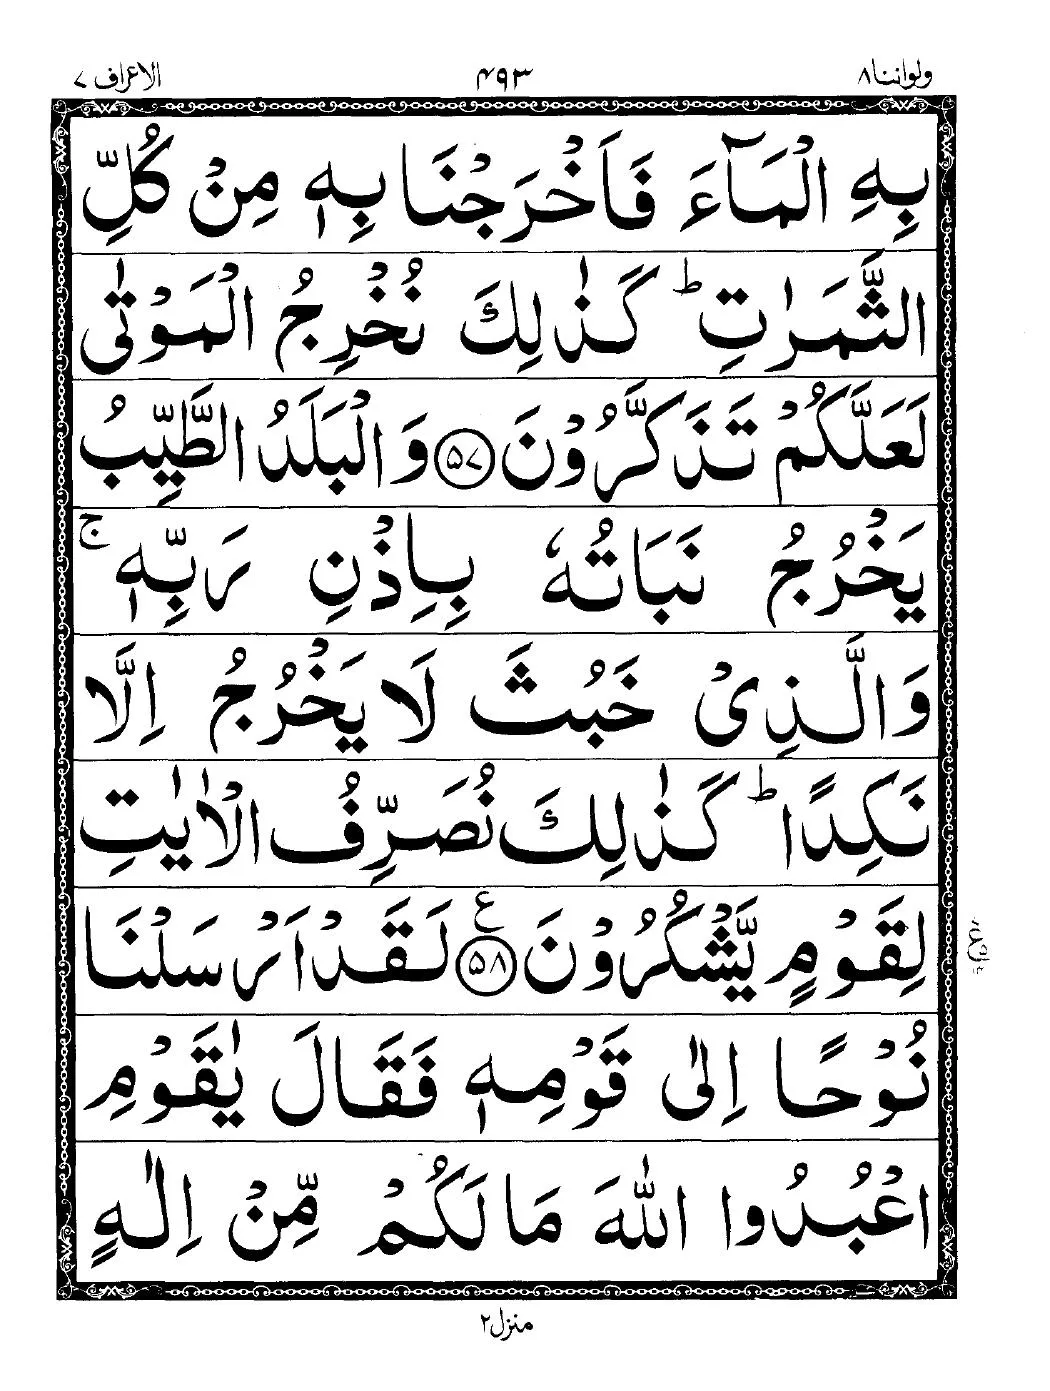 ولواننا ۸ ۴۹۳ الاعراف ۷
بِهِ الْمَآءَ فَاَخْرَجْنَا بِهٖ مِنْ كُلِّ
الثَّمَرٰتِ ؕ كَذٰلِكَ نُخْرِجُ الْمَوْتٰى
لَعَلَّكُمْ تَذَكَّرُوْنَ ۵۷ وَالْبَلَدُ الطَّيِّبُ
يَخْرُجُ نَبَاتُهٗ بِاِذْنِ رَبِّهٖ ۚ
وَالَّذِىْ خَبُثَ لَا يَخْرُجُ اِلَّا
نَكِدًا ؕ كَذٰلِكَ نُصَرِّفُ الْاٰيٰتِ
لِقَوْمٍ يَّشْكُرُوْنَ ۵۸ ع لَقَدْ اَرْسَلْنَا
نُوْحًا اِلٰى قَوْمِهٖ فَقَالَ يٰقَوْمِ
اعْبُدُوا اللّٰهَ مَا لَكُمْ مِّنْ اِلٰهٍ
منزل ۲